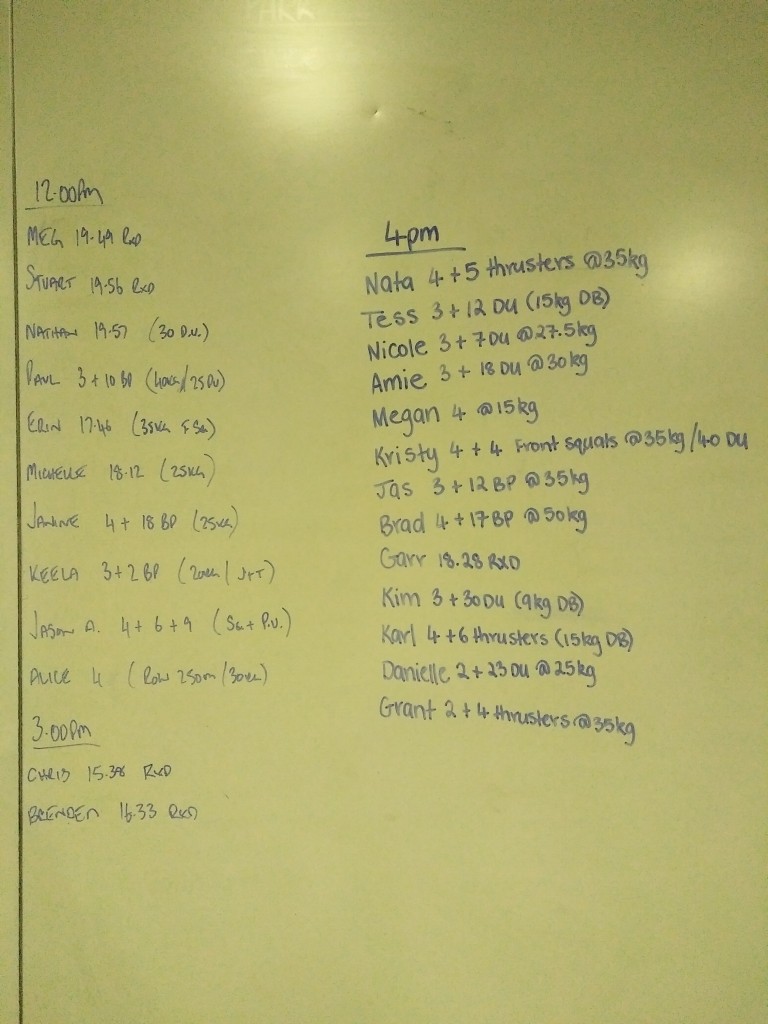 PARK
12.00pm
MEG 19.49 RxD
STUART 19.56 RxD
NATHAN 19.57 (30 D.U.)
PAUL 3 + 10 BP (40KG/25DU)
ERIN 17.46 (35KG F SQ)
MICHELLE 18.12 (25KG)
JANINE 4 + 18 BP (25KG)
KEELA 3+2 BP (20KG / J+T)
JASON A. 4 + 6 + 9 (SQ + P.U.)
ALICE 4 (ROW 250m/30KG)
3.00pm
CHRIS 15.38 RXD
BRENDEN 16.33 RXD
4pm
Nata 4 + 5 thrusters @35kg
Tess 3 + 12 DU (15kg DB)
Nicole 3 + 7 DU @27.5kg
Amie 3 + 18 DU @30kg
Megan 4 @15kg
Kristy 4 + 4 Front squats @35kg/40 DU
Jas 3 + 12 BP @35kg
Brad 4 + 17 BP @50kg
Garr 18.28 RXD
Kim 3 + 30 DU (9kg DB)
Karl 4 + 6 thrusters (15kg DB)
Danielle 2 + 23 DU @25kg
Grant 2 + 4 thrusters @35kg